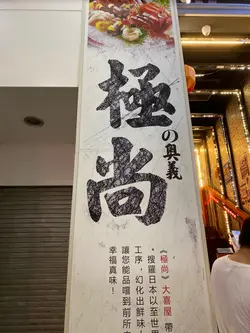 極尚
の奥義
《極尚》大喜屋
・搜羅日本以至世界
工序，幻化出鮮味
讓您能品嚐到前所
幸福真味！